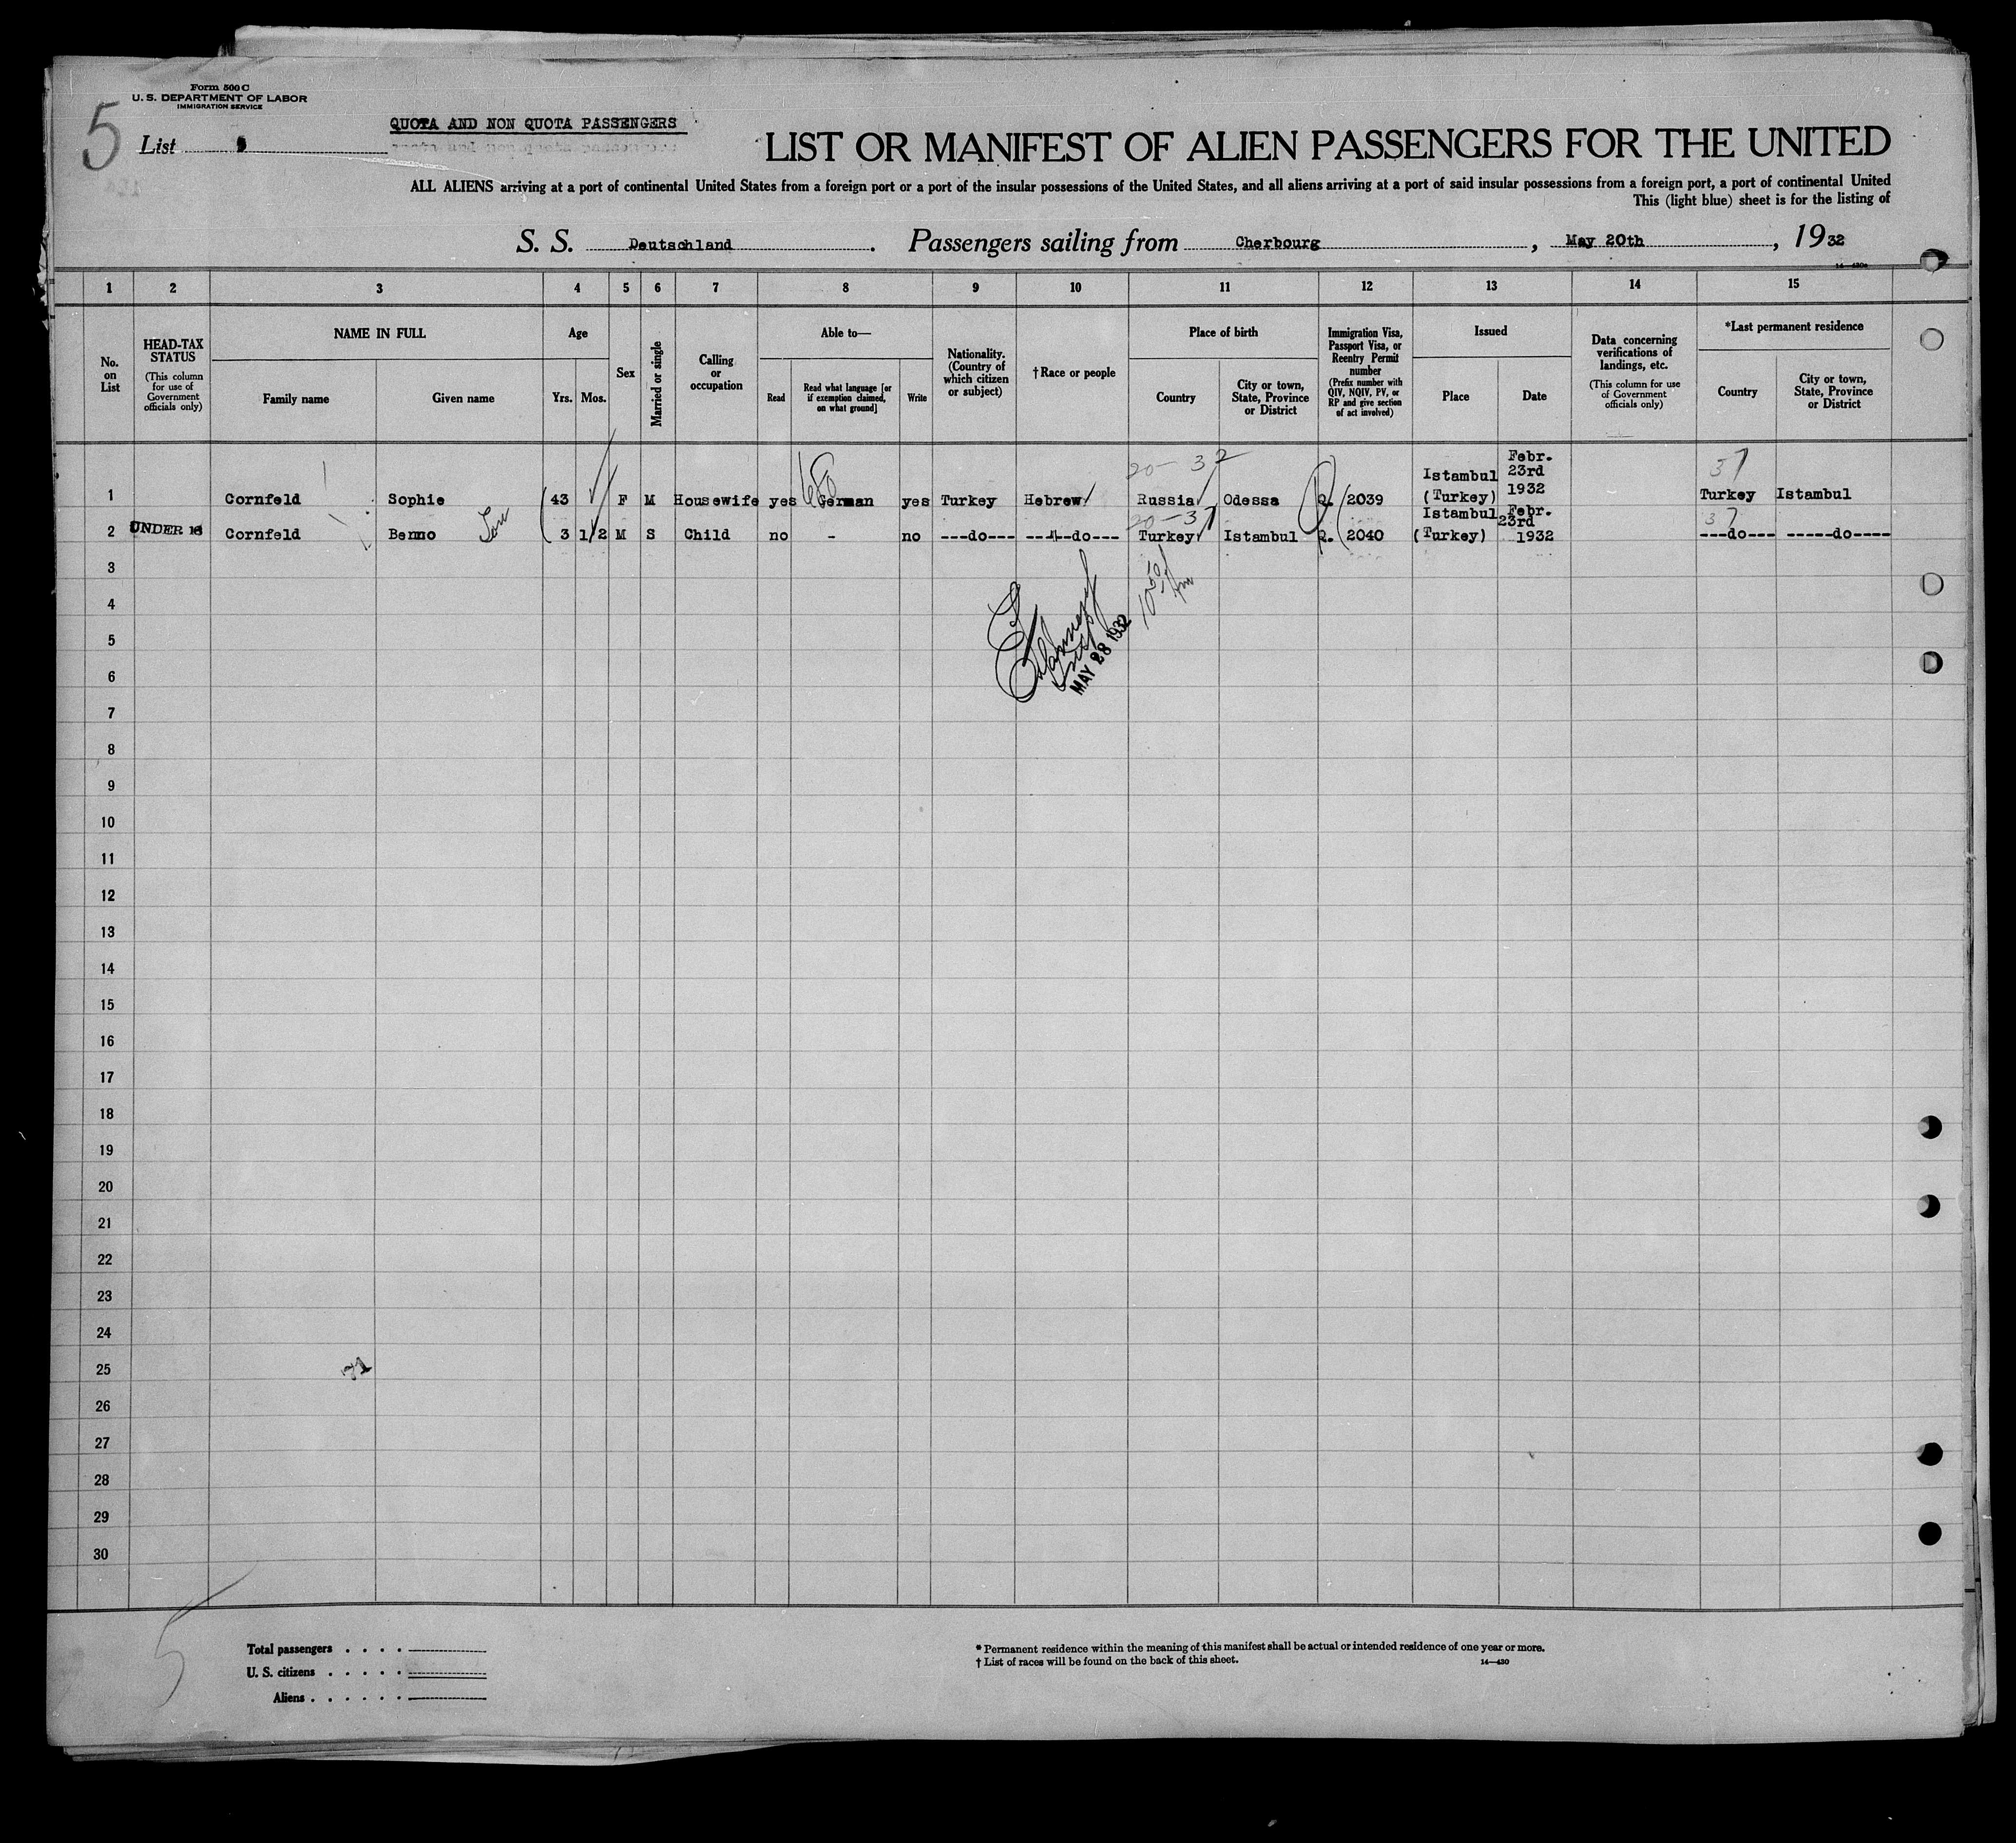 Form 500 C
U. S. DEPARTMENT OF LABOR
IMMIGRATION SERVICE
5
List
QUOTA AND NON QUOTA PASSENGERS
LIST OR MANIFEST OF ALIEN PASSENGERS FOR THE UNITED
ALL ALIENS arriving at a port of continental United States from a foreign port or a port of the insular possessions of the United States, and all aliens arriving at a port of said insular possessions from a foreign port, a port of continental United
This (light blue) sheet is for the listing of
S. S. Deutschland. Passengers sailing from Cherbourg, May 20th, 1932
14—430a
1 2 3 4 5 6 7 8 9 10 11 12 13 14 15
No. on List
HEAD-TAX STATUS
(This column for use of Government officials only)
NAME IN FULL
Family name
Given name
Age
Yrs. Mos.
Sex
Married or single
Calling or occupation
Able to—
Read
Read what language [or if exemption claimed, on what ground]
Write
Nationality. (Country of which citizen or subject)
†Race or people
Place of birth
Country
City or town, State, Province or District
Immigration Visa, Passport Visa, or Reentry Permit number
(Prefix number with QIV, NQIV, PV, or RP and give section of act involved)
Issued
Place
Date
Data concerning verifications of landings, etc.
(This column for use of Government officials only)
*Last permanent residence
Country
City or town, State, Province or District
20-32
37
1 Cornfeld Sophie 43 F M Housewife yes German yes Turkey Hebrew Russia Odessa Q. 2039 Istambul (Turkey) Febr. 23rd 1932 Turkey Istambul
20-37
37
2 UNDER 16 Cornfeld Benno Son 3 1/2 M S Child no - no ---do--- ----do--- Turkey Istambul Q. 2040 Istambul (Turkey) Febr. 23rd 1932 ---do--- -----do----
3
4
MAY 28 1932
5
6
7
8
9
10
11
12
13
14
15
16
17
18
19
20
21
22
23
24
25
26
27
28
29
30
5
Total passengers . . . .
U. S. citizens . . . . .
Aliens . . . . . .
* Permanent residence within the meaning of this manifest shall be actual or intended residence of one year or more.
† List of races will be found on the back of this sheet.
14—430